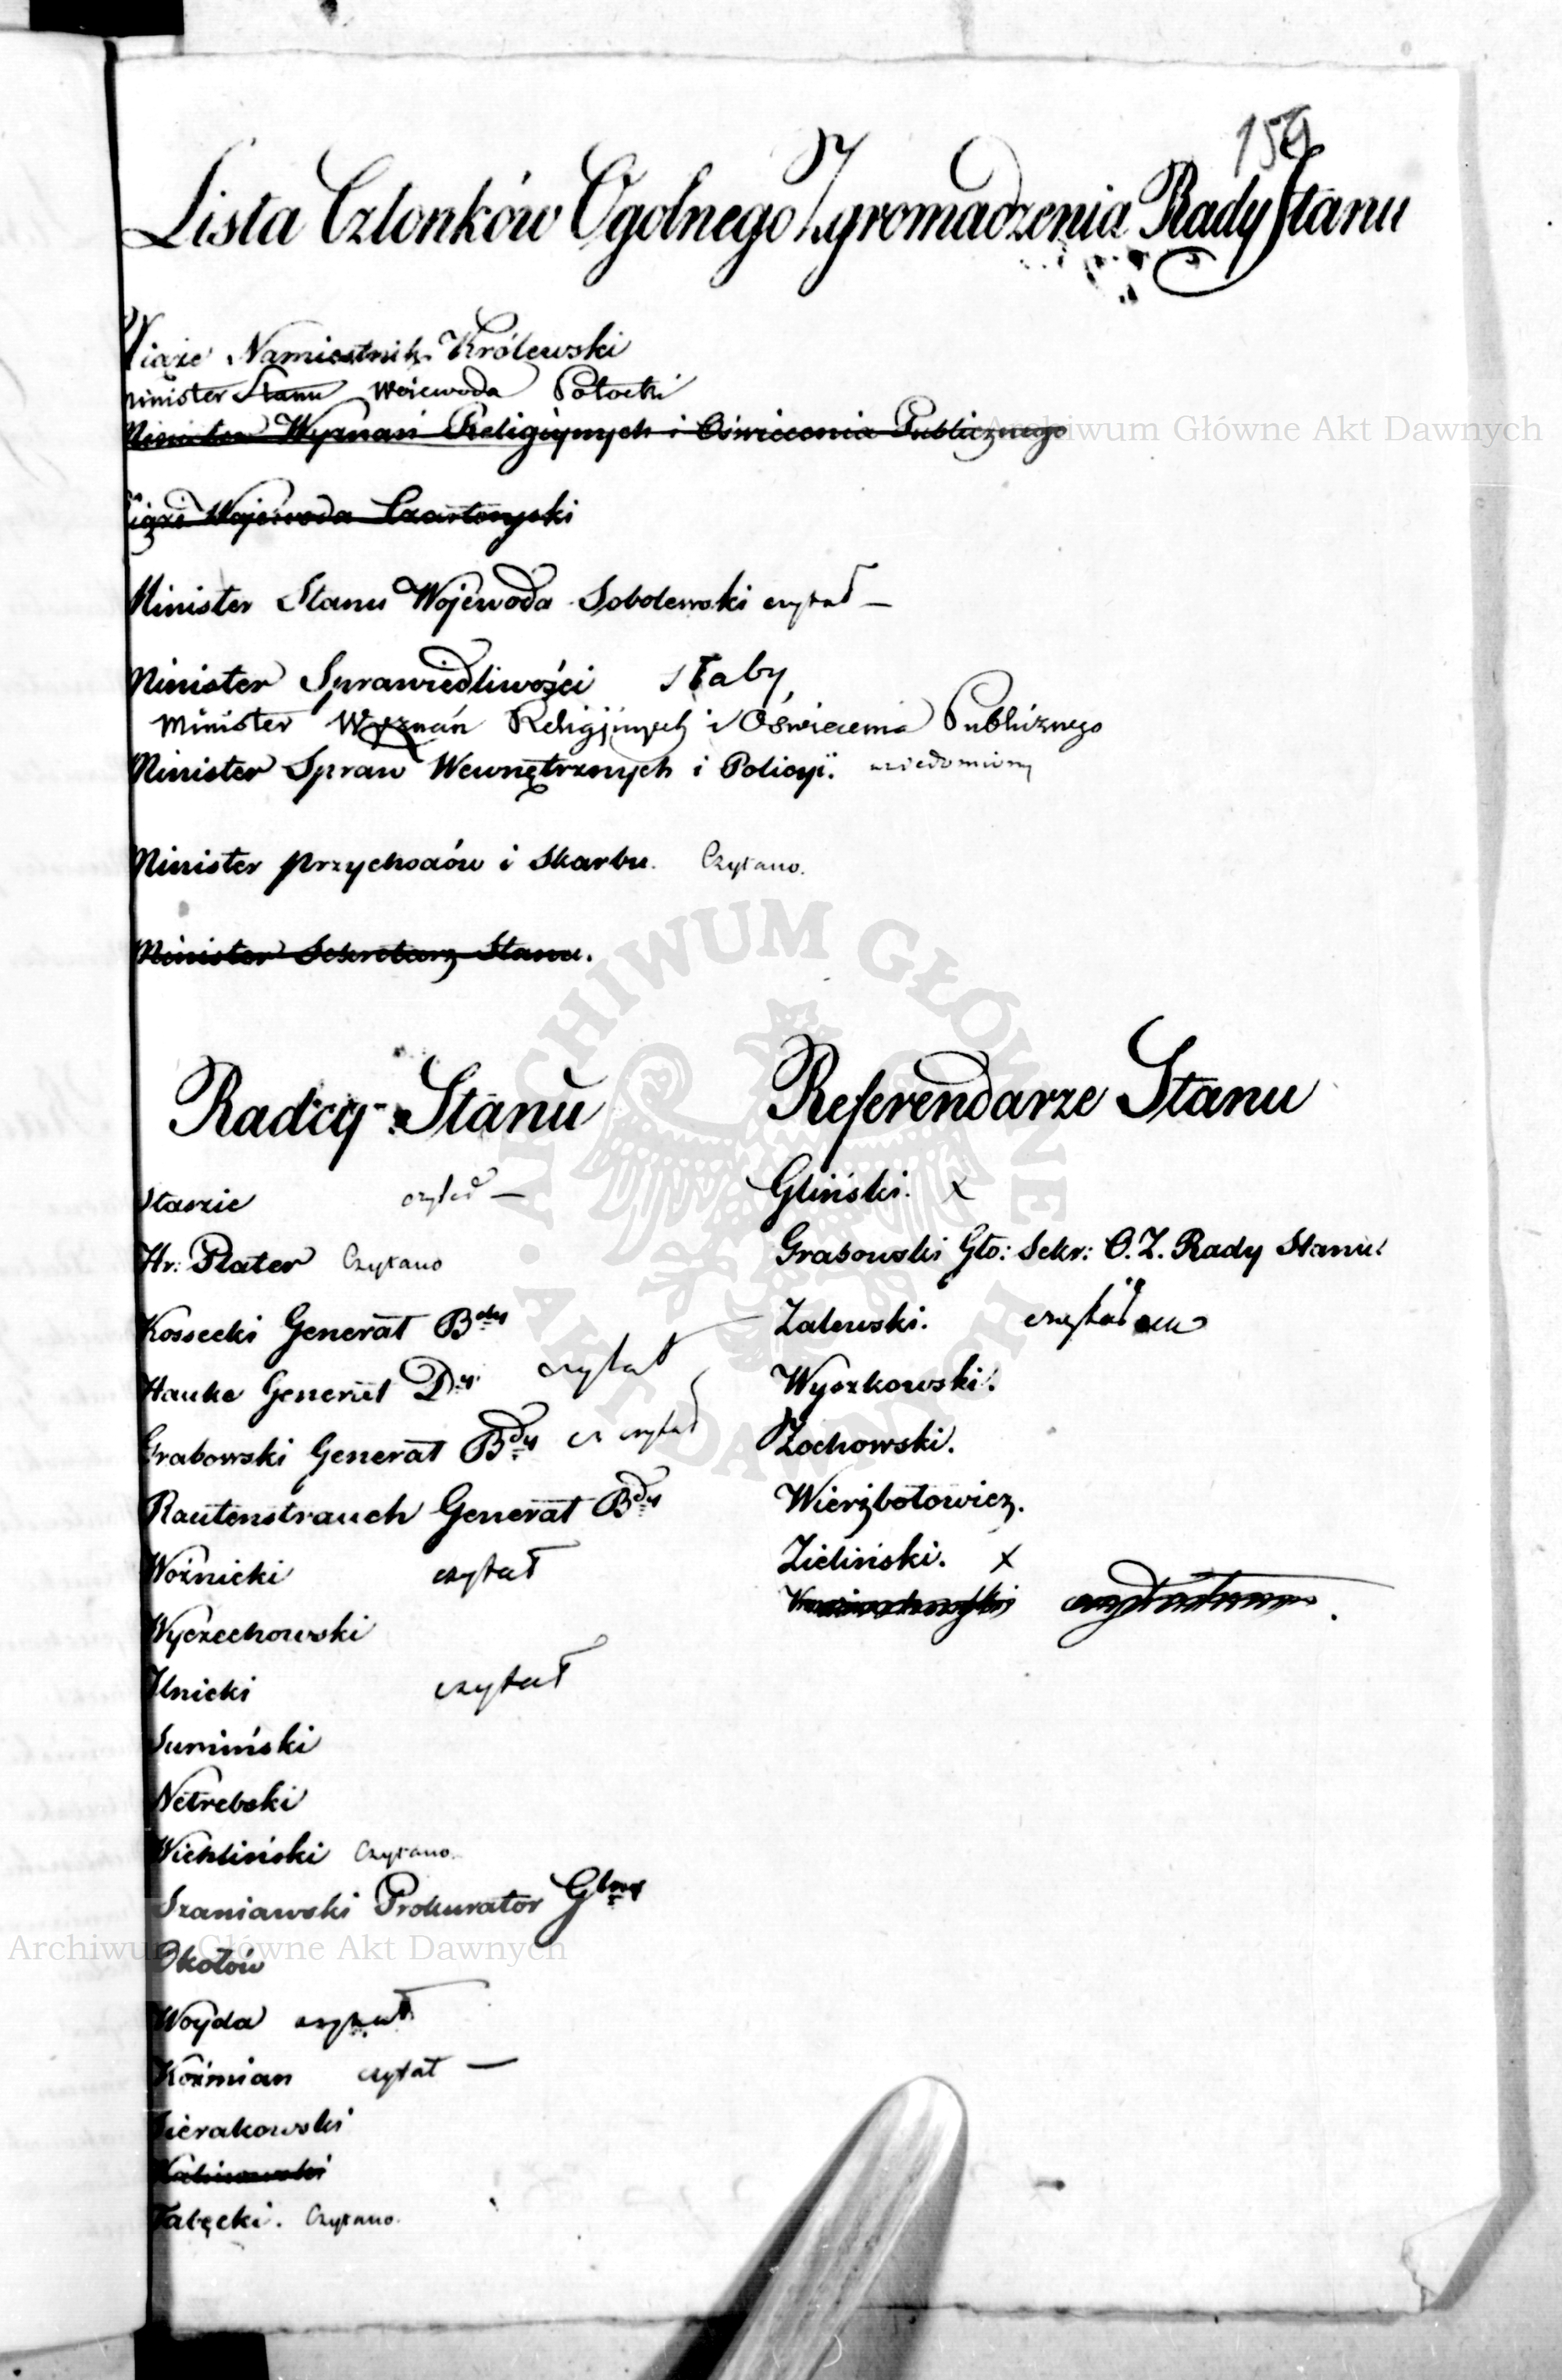 159
Lista Członków Ogolnego Zgromadzenia Rady Stanu
Xiąże Namiestnik Królewski
Minister Stanu Wojewoda Potocki
Minister Wyznań Religiynych i Oświecenia Publicznego
Xiąże Wojewoda Czartoryski
Minister Stanu Wojewoda Sobolewski czytał —
Minister Sprawiedliwości słaby
Minister Wyznań Religijnych i Oświecenia Publicznego
Minister Spraw Wewnętrznych i Policyi. uwiedomiony
Minister przychodów i Skarbu. Czytano.
Minister Sekretarz Stanu.
Radcy Stanu
Staszic czytał —
Hr: Plater Czytano
Kossecki Generał Bdy
Hauke Generał Dy czytał
Grabowski Generał Bdy czytał
Rautenstrauch Generał Bdy
Woźnicki czytał
Wyczechowski
Ilnicki czytał
Sumiński
Netrebski
Wichliński Czytano.
Szaniawski Prokurator Glny
Okołów
Woyda czytał
Koźmian czytał —
Sierakowski
Kalinowski
Tabęcki. Czytano.
Referendarze Stanu
Gliński. x
Grabowski Gło: Sekr: O. Z. Rady Stanu.
Zalewski. czytał
Wyszkowski.
Żochowski.
Wierzbołowicz.
Zieliński. x
Archiwum Główne Akt Dawnych
ARCHIWUM GŁÓWNE AKT DAWNYCH
Archiwum Główne Akt Dawnych